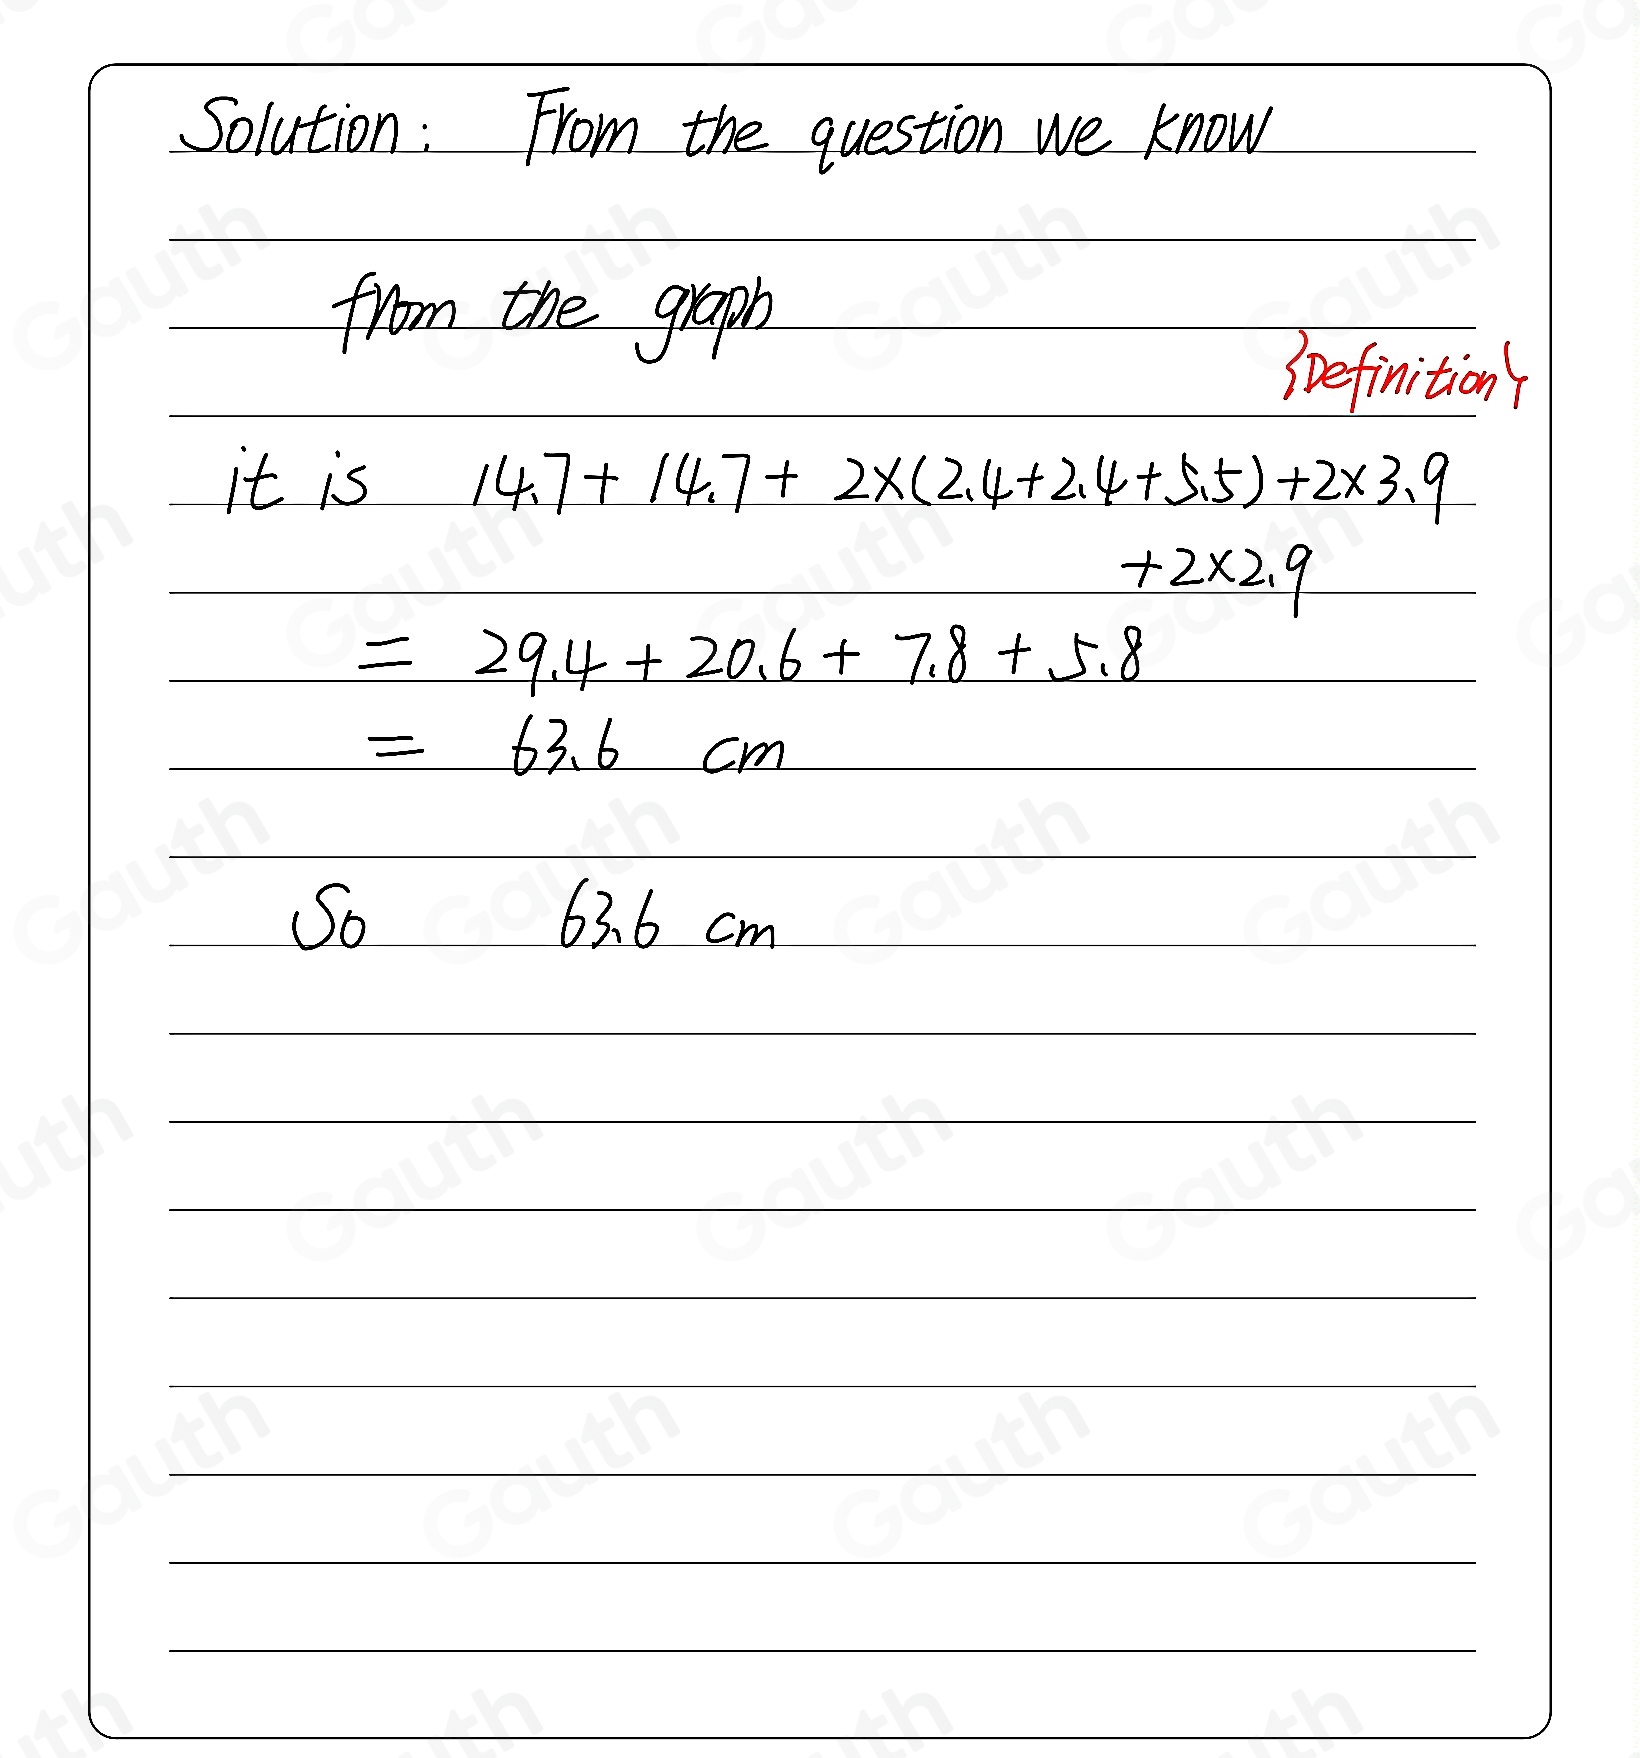 Solution: From the question we know
from the graph
{Definition}
it is 14.7+14.7+ 2×(2.4+2.4+5.5)+2×3.9
+2×2.9
= 29.4+20.6+7.8+5.8
= 63.6 cm
So 63.6 cm